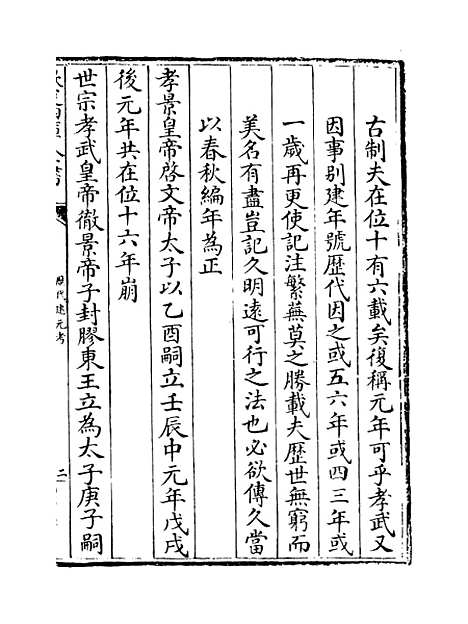 古制夫在位十有六載矣復稱元年可乎孝武又
因事别建年號歴代因之或五六年或四三年或
一歳再更使記注繁蕪莫之勝載夫歴世無窮而
美名有盡豈記久明遠可行之法也必欲傳久當
以春秋編年為正
孝景皇帝啓文帝太子以乙酉嗣立壬辰中元年戊戌
後元年共在位十六年崩
世宗孝武皇帝徹景帝子封膠東王立為太子庚子嗣
歴代建元考
二